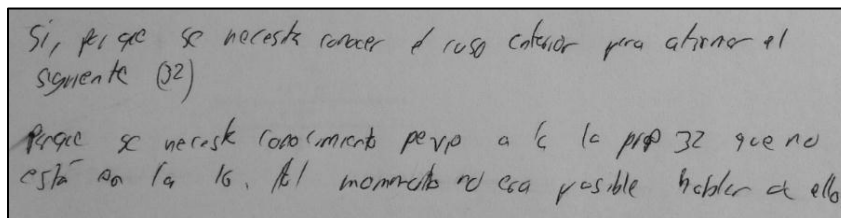 Si, por que se necesita conocer el caso anterior para afirmar el
siguiente (32)
Porque se necesita conocimiento previo a la prop 32 que no
está en la 16. Al momento no era posible hablar de ello